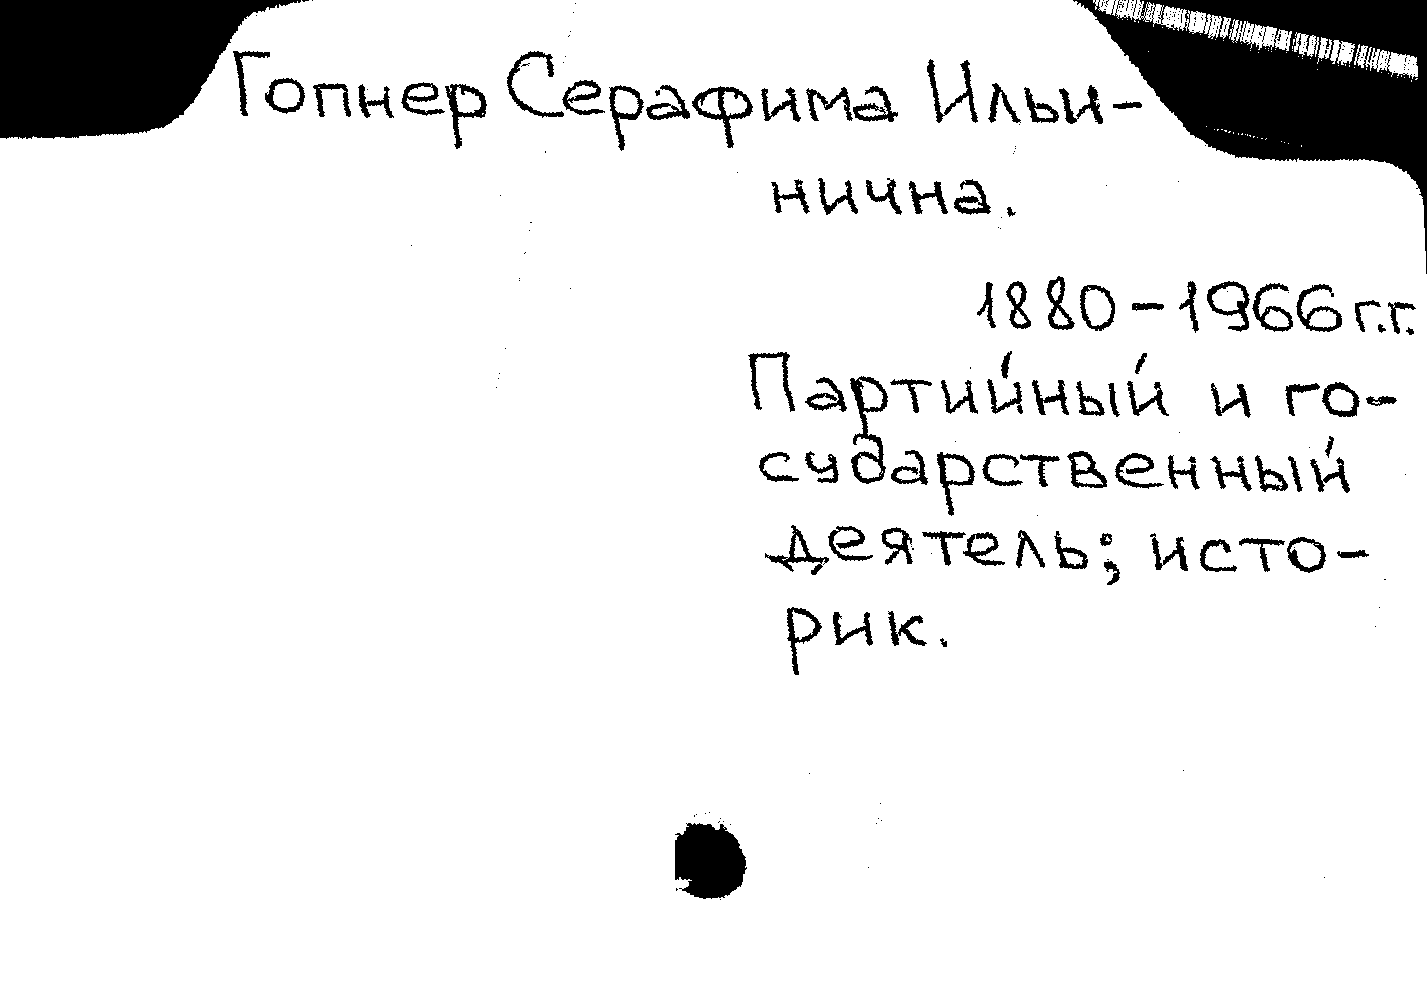 Гопнер Серафима Ильи-
нична.
1880-1966 г.г.
Партийный и го-
сударственный
деятель; исто-
рик.